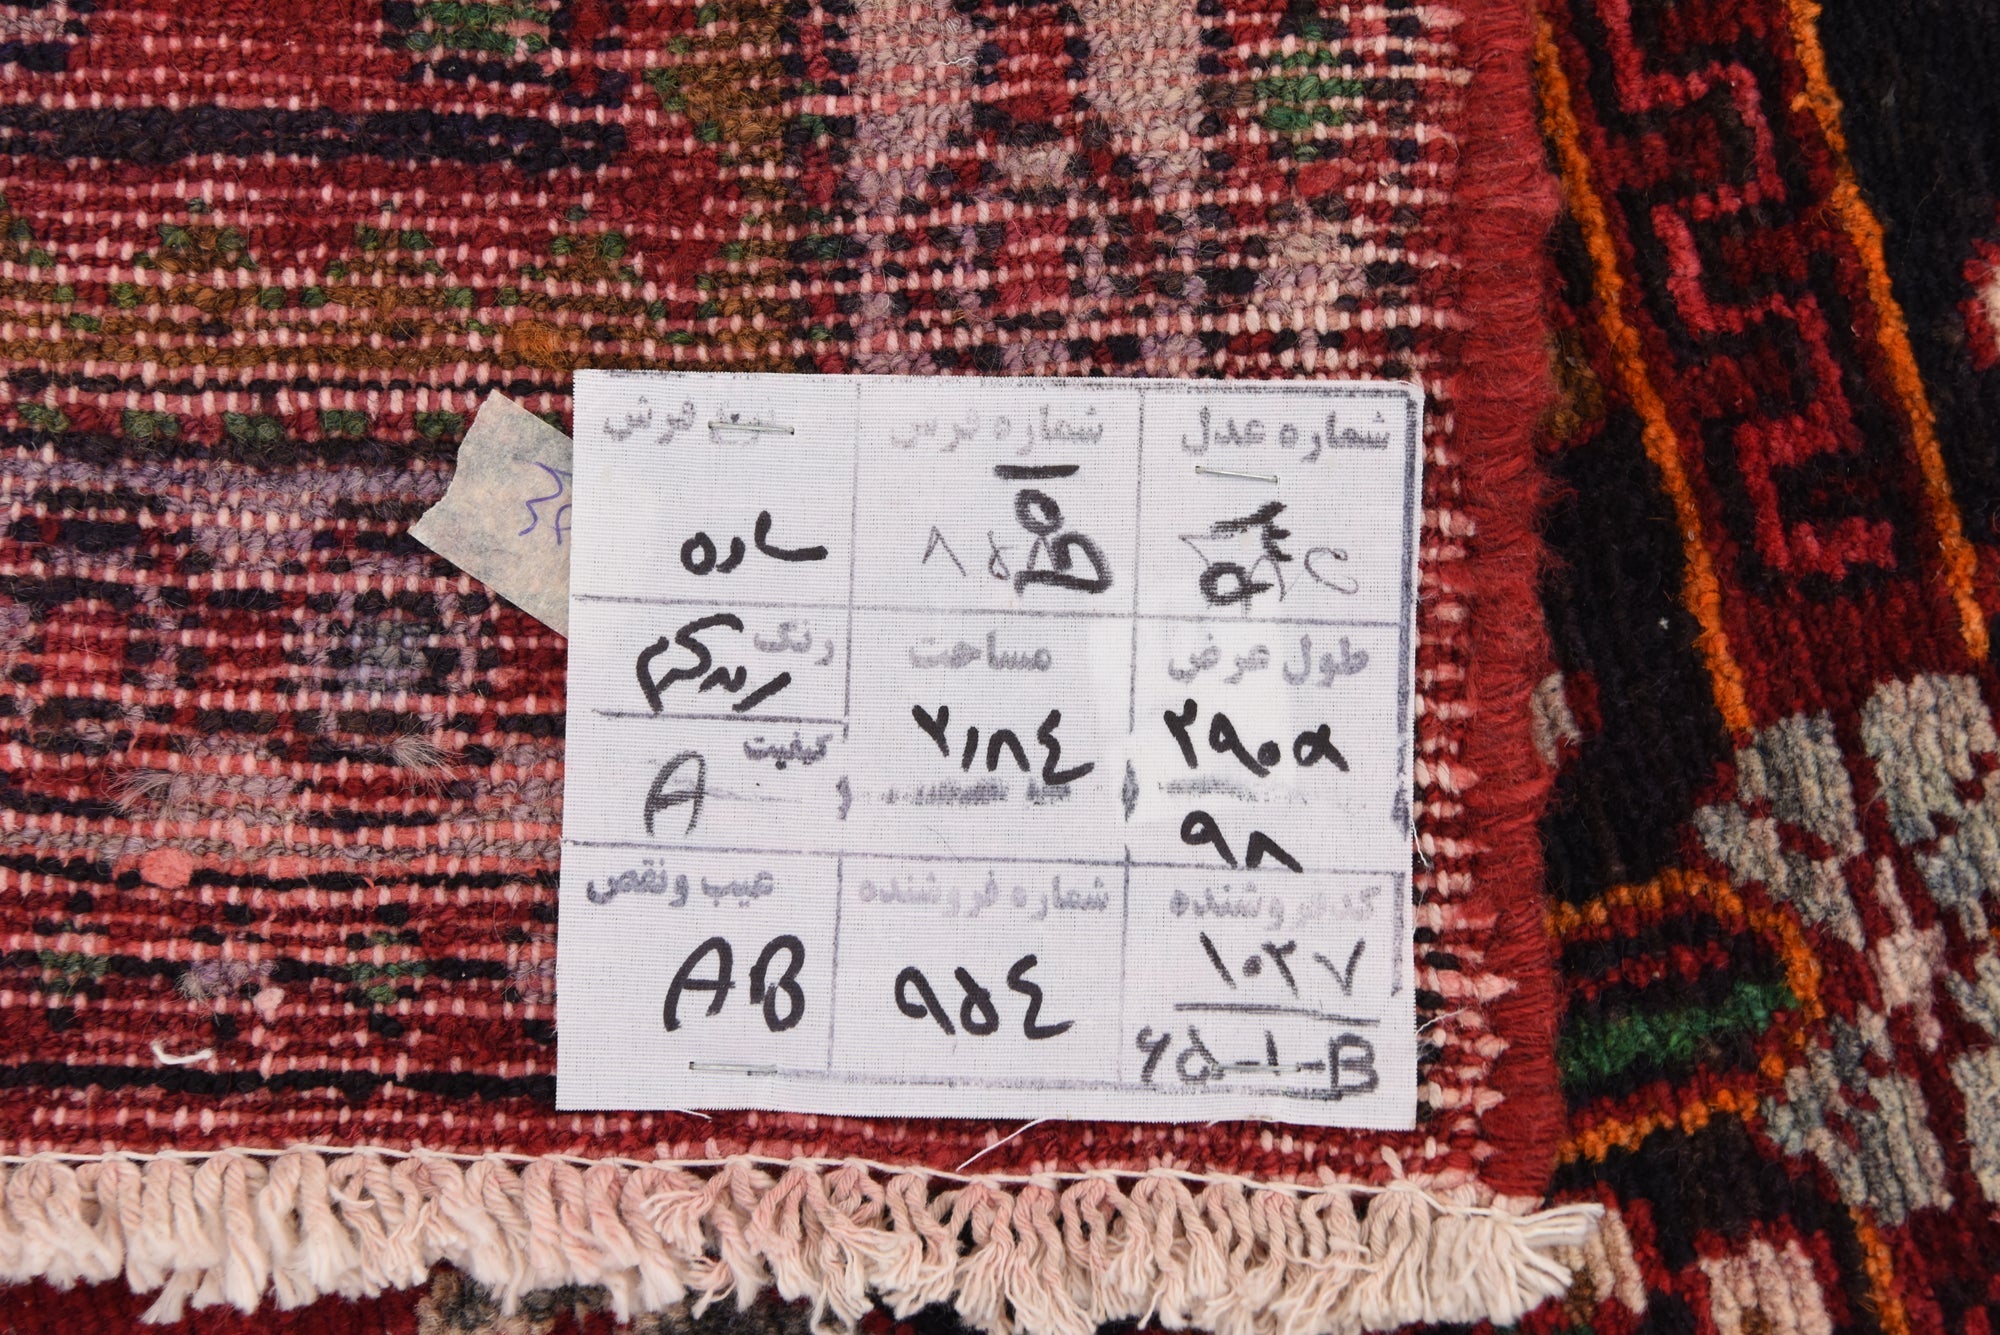 شماره عدل
شماره فرش
نوع فرش
ساده
طول عرض
مساحت
رنگ
۲۹۰۵
۹۸
۲/۸۴
کیفیت
A
کد فروشنده
شماره فروشنده
عیب و نقص
۱۰۲۷
۶۵-۱-B
۹۵۴
AB